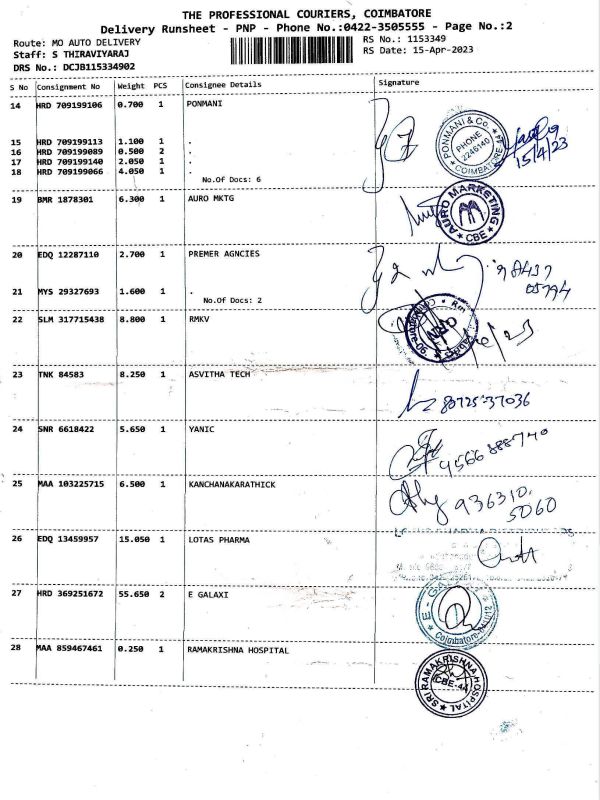 THE PROFESSIONAL COURIERS, COIMBATORE
Delivery Runsheet - PNP - Phone No.:0422-3505555 - Page No.:2
Route: MO AUTO DELIVERY
Staff: S THIRAVIYARAJ
DRS No.: DCJB115334902
RS No.: 1153349
RS Date: 15-Apr-2023
S No Consignment No Weight PCS Consignee Details Signature
14 HRD 709199106 0.700 1 PONMANI
15 HRD 709199113 1.100 1 .
16 HRD 709199089 0.500 2 .
17 HRD 709199140 2.050 1 .
18 HRD 709199066 4.050 1 .
No.Of Docs: 6
PONMANI & Co. COIMBATORE
PHONE 2246140
15/4/23
19 BMR 1878301 6.300 1 AURO MKTG
AURO MARKETING CBE
20 EDQ 12287110 2.700 1 PREMER AGNCIES
21 MYS 29327693 1.600 1 .
No.Of Docs: 2
22 SLM 317715438 8.800 1 RMKV
23 TNK 84583 8.250 1 ASVITHA TECH
80725 37036
24 SNR 6618422 5.650 1 YANIC
9566888740
25 MAA 103225715 6.500 1 KANCHANAKARATHICK
936310
5060
26 EDQ 13459957 15.050 1 LOTAS PHARMA
27 HRD 369251672 55.650 2 E GALAXI
28 MAA 859467461 0.250 1 RAMAKRISHNA HOSPITAL
SRI RAMAKRISHNA HOSPITAL
CBE-44